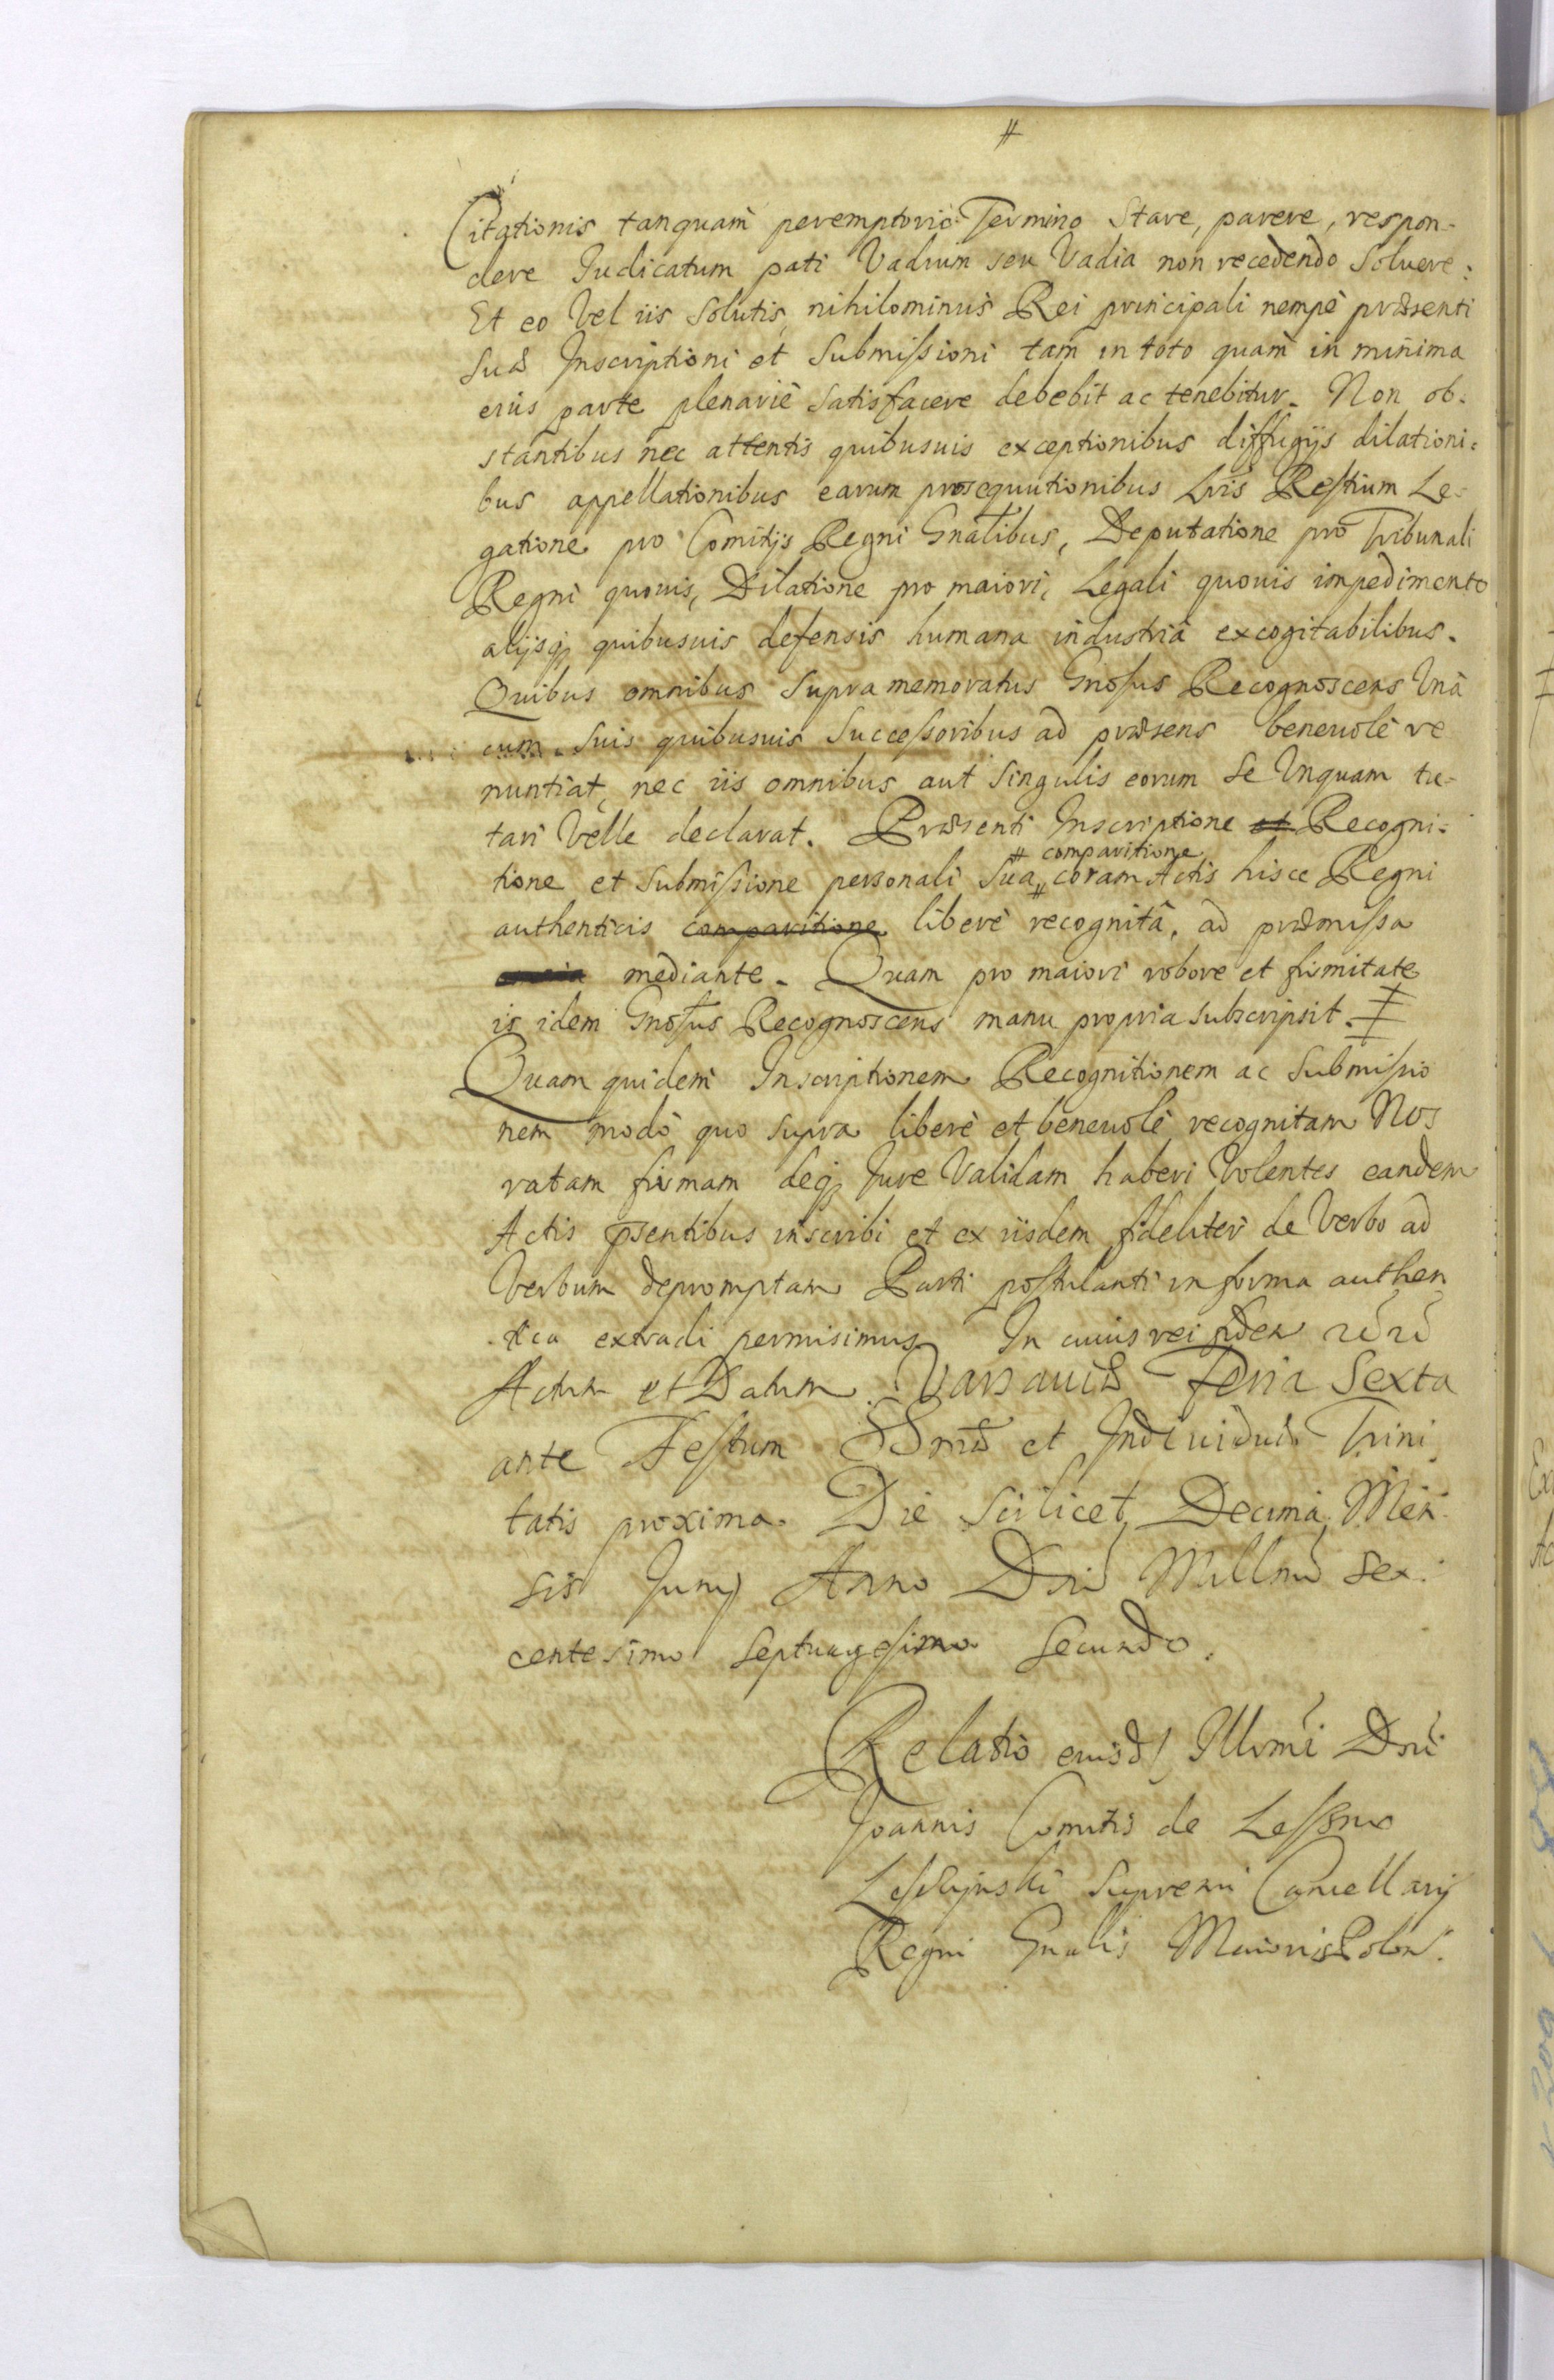 #
Citationis tanquam peremptorio Termino Stare, parere, respon-
dere Judicatum pati Vadium seu Vadia non recedendo Soluere:
Et eo Vel iis Solutis, nihilominus Rei principali nempè præsenti
Suæ Inscriptioni et Submissioni tam in toto quam in minima
eius parte plenariè Satisfacere debebit ac tenebitur. Non ob-
stantibus nec attentis quibusuis exceptionibus diffugijs dilationi-
bus appellationibus earum prosequutionibus Lris Restium Le-
gatione pro Comitijs Regni Gnalibus, Deputatione pro Tribunali
Regni quouis, Dilatione pro maiori, Legali quouis impedimento
alijsq quibusuis defensis humana industriâ excogitabilibus.
Quibus omnibus Supra memoratus Gnosus Recognoscens Unâ
cum Suis quibusuis Successoribus ad præsens beneuolè re
nuntiat, nec iis omnibus aut Singulis eorum Se Unquam tu-
tari Velle declarat. Præsenti Inscriptione et Recogni-
# comparitione
tione et Submissione personali Sua # coram Actis hisce Regni
authenticis comparitione liberè recognitâ, ad præmissa
mediante. Quam pro maiori robore et firmitate
is idem Gnosus Recognoscens manu propria subscripsit.
Quam quidem Inscriptionem Recognitionem ac Submissio
nem modò quo supra liberè et beneuolè recognitam Nos
ratam firmam deq Jure Validam haberi Volentes eandem
Actis psentibus inscribi et ex iisdem fideliter de Verbo ad
Verbum depromptam Parti postulanti in forma authen
tica extradi permisimus. In cuius rei fidem
Actum et Datum Varsauiæ Feria Sexta
ante Festum SSmæ et Indiuiduæ Trini
tatis proxima. Die Scilicet Decima Men
sis Junij Anno Dni Millmo Sex-
centesimo Septuagesimo Secundo.
Relatio eiusd Illrmi Dni
Joannis Comitis de Leszno
Leszczynski Supremi Cancellarij
Regni Gnalis Maioris Polon.